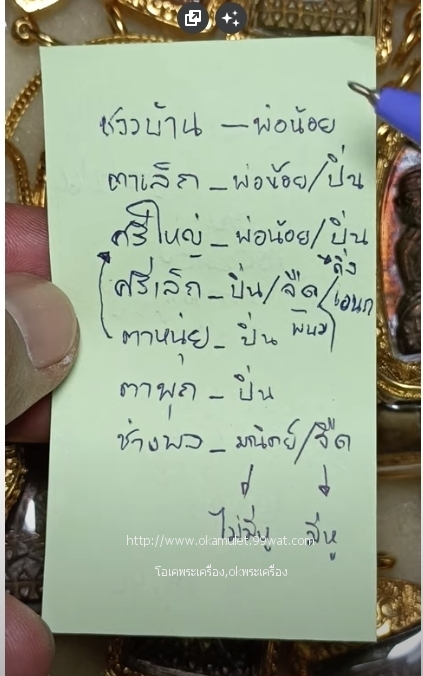 ชาวบ้าน – พ่อน้อย
ตาเล็ก – พ่อน้อย/ปิ่น
ศรีใหญ่ – พ่อน้อย/ปิ่น
ศรีเล็ก – ปิ่น/จืด
ตาหนุ่ย – ปิ่น
ตาพุก – ปิ่น
ช่างพล – มานิตย์/จืด
ไม่มีหู มีหู
http://www.okamulet.99wat.com
โอเคพระเครื่อง,okพระเครื่อง